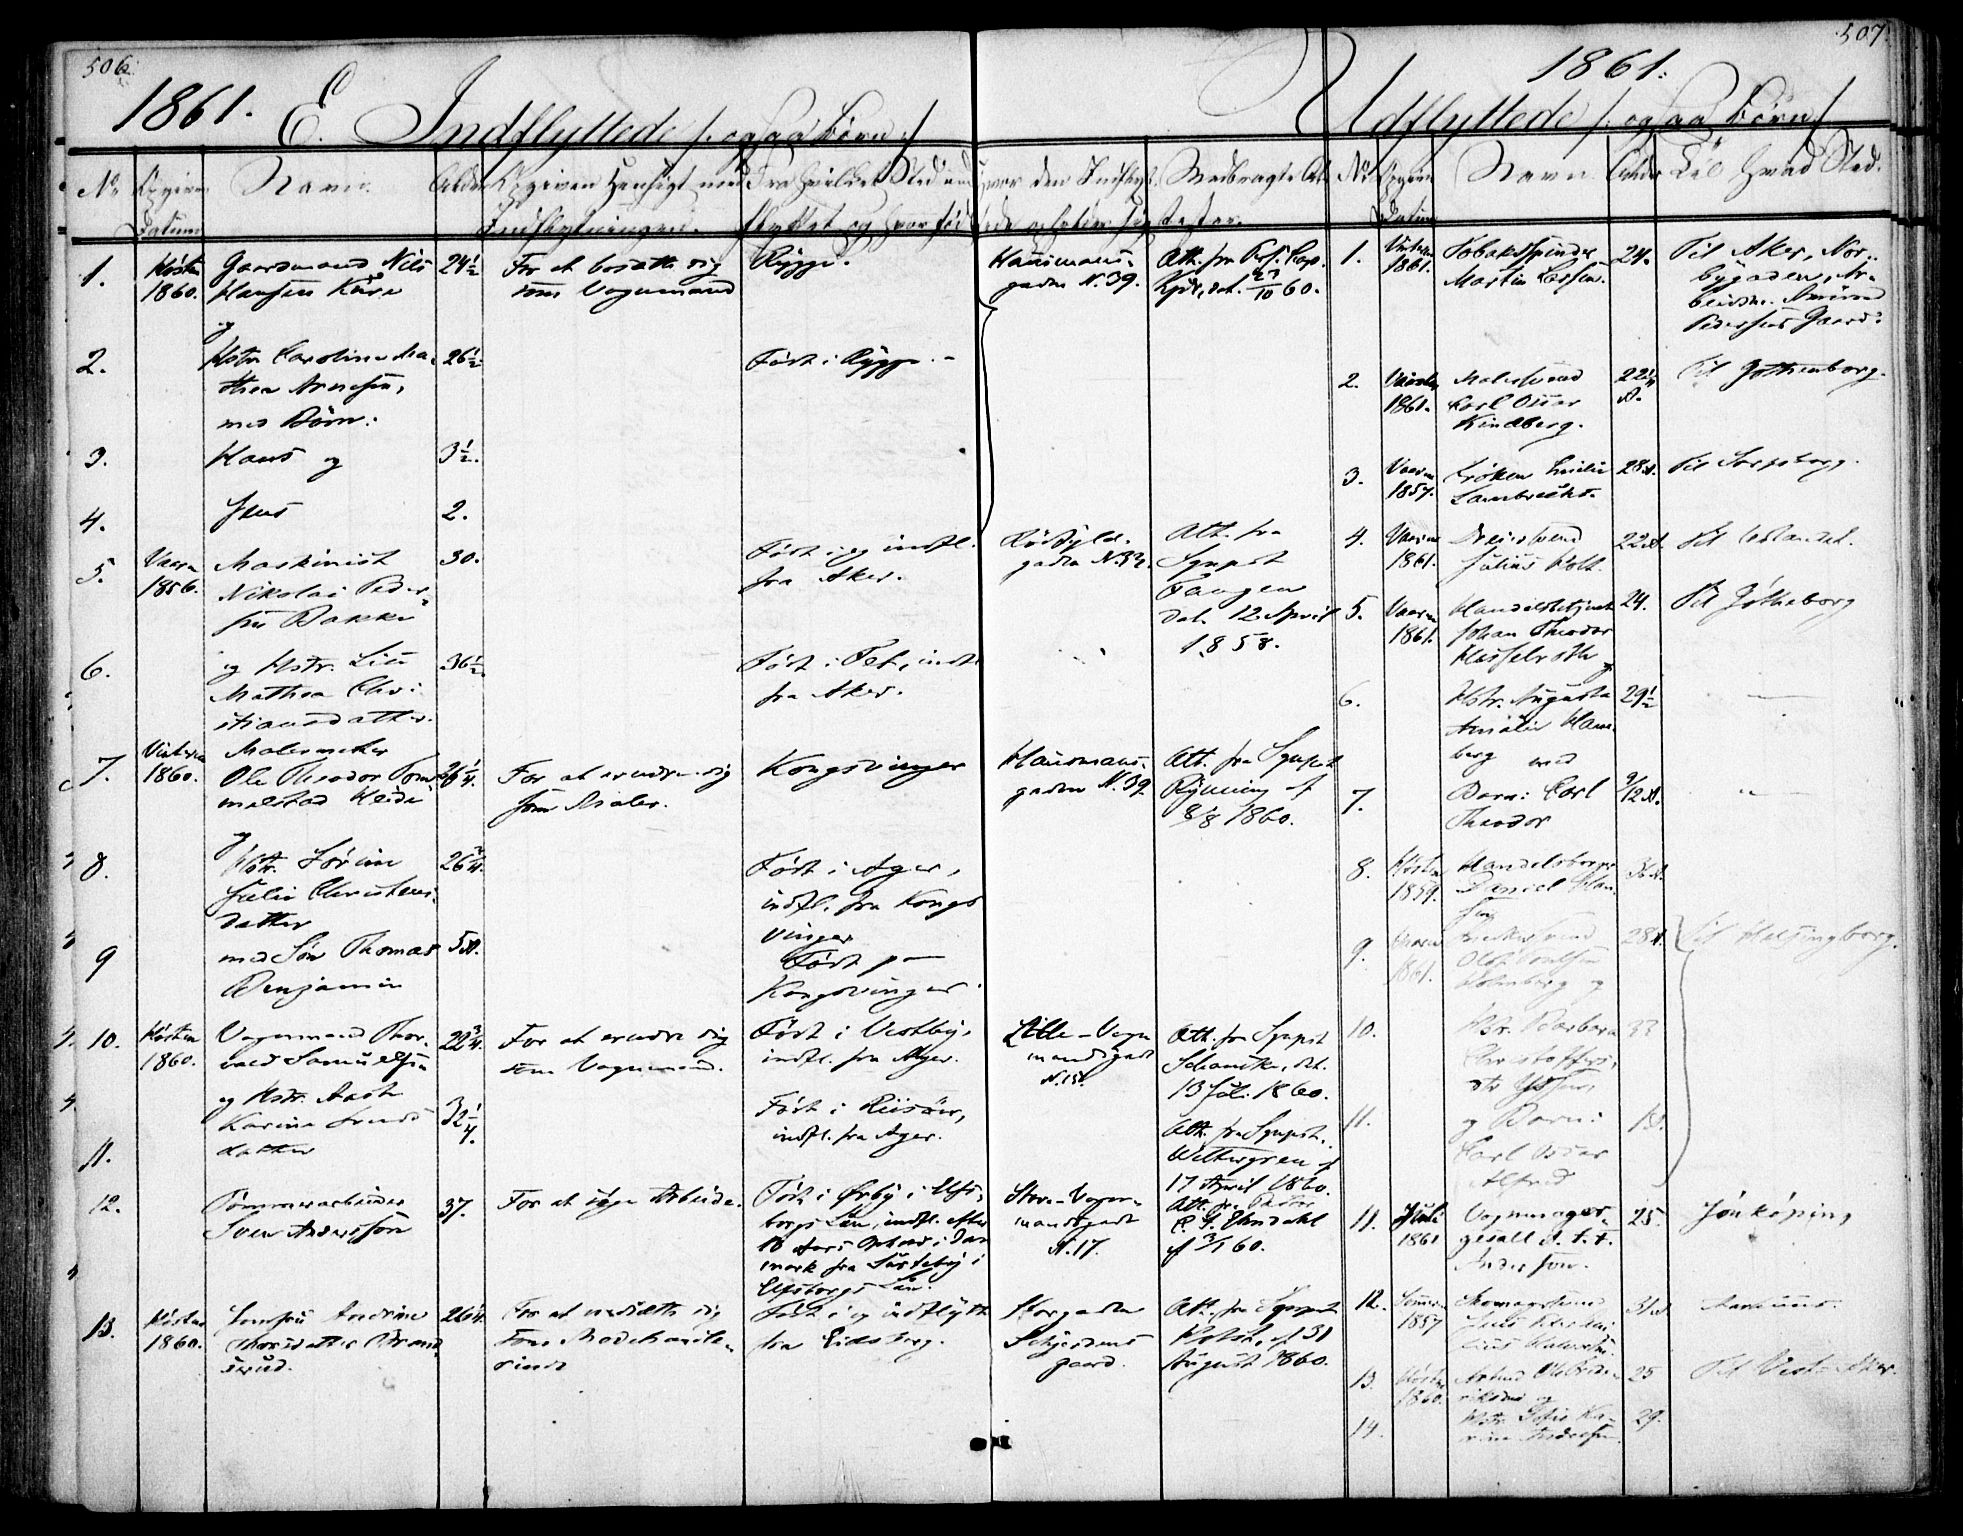 506.
1861. E. Indflyttede /: ogsaa Børn :/
No Opgiven Datum
Navn.
Alder
Opgiven Hensigt med Indflytningen.
Fra hvilket Sted ind flyttet og hvor född
Hvor den Indflyt.
Medbragte At tester.
1. Høsten 1860.
Gaardmand Nils
Hansen Kure
24 1/2
For at bosætte sig
som Vognmand
Rygge.
Hausmans-
gaden N. 39.
Att. fra Pers. Cap.
det. 23/10 60.
og
2. Hstr. Caroline Ma-
thea Arnesen,
med Börn:
26 1/2
Född i Rygge. -
3. Hans og
3 1/2.
4. Jens
2.
5. Vaaren 1856.
Maskinist
Nikolai Peder-
sen Bakke
30.
Född i og indfl.
fra Aker.
gaden N. 32.
Att. fra
Sgnpst
Faugen
dat. 12 April
1858.
6. og Hstr. Lise
Mathea Chri-
stiansdatter.
36 1/2.
Född i Fet, indfl.
fra Aker.
7. Vinteren 1860.
Malermester
Ole Theodor Tom
melstad Heide
26 1/4.
For at ernære sig
som Maler.
Kongsvinger
Hausmans-
gaden N. 39.
Att. fra Sgnpst
Rynning af
8/8 1860.
og
8. Hstr. Sørine
Julie Christens-
datter
26 3/4.
Född i Ager,
indfl. fra Kongs
vinger
9 med Søn Thomas
Benjamin
5 A.
Född paa
Kongsvinger.
10. Høsten 1860.
Vognmand Thor-
vald Samuelsen
22 3/4.
For at ernære sig
som Vognmand.
Född i Vestby,
indfl. fra Ager.
Lille-Vogn
mandsgade
N. 15.
Att. fra Sgnpst
Schanche, dat.
13 Juli 1860.
11. og Hstr. Aaste
Karine Knuds
datter
32 1/4.
Född i Riisöer,
indfl. fra Ager.
Att. fra Sgnpst.
Wettergren af
17 April 1860.
12. Tömmerarbeider
Sven Andersson
37.
For at söge Arbeide.
Född i Ørby i Elfs-
borgs Län, indfl. efter
18 Aars Ophold i Dan
mark fra Sätteby i
Elfsborgs Län.
Store-Vogn-
mandsgade
N. 17.
Att. fra Pastor
af 3/1 60.
13. Høsten 1860.
Jomfru Andrine
Thorsdatter Brand
serud.
26 1/4.
For at nedsætte sig
som Modehandle-
rinde
Född i og indflytt.
fra Eidsberg.
Storgaden
Schjerdens
gaard.
Att. fra Sgnpst
Holst, af 31
August 1860.
507.
1861.
Udflyttede /: ogsaa Børn :/
No. Opgiven Datum
Navn
Alder
Til hvad Sted.
1. Vinteren 1861.
Tobakspinder
Martin Olssen.
24.
Til Aker, Nor-
bygaden, Ar-
beidsm. Amund
Pedersens Gaard.
2. Vaaren 1861.
Malersvend
Carl Oscar
Kindberg.
22 1/4 A.
Til Gothenborg.
3. Vaaren 1857.
Fröken Emilie
Lambrechts.
28 A.
Til Sarpsborg.
4. Vaaren 1861.
Dreiersvend
Julius Holt.
22 A.
Til Udlandet.
5. Vaaren 1861.
Handelsbetjent
Johan Theodor
Hesselroth
24.
Til Götheborg
og
6. Hstr. Augusta
Amalie Ham-
berg med
29 1/2
7. Barn: Carl
Theodor
9/12 A.
8. Høsten 1859.
Handelsborger
Daniel Han-
sen
9. Vaaren 1861.
Snedkersvend
Holmberg og
28 A.
Til Helsingborg.
10. Hstr. Barbara
Christoffers-
33
11. og Barn:
Carl Oscar
Alfred
1 A.
11. Juli 1861
Vognmager-
gesell A. t. t.
Andersson.
25.
Jönköping
12. Sommeren 1857
Skomagersvend
31 A
13. Høsten 1860.
Arbmd Ole Frede-
riksen og
25
Til Vest-Aker.
14. Hstr. Sofie Ka-
rine Andersen.
29.